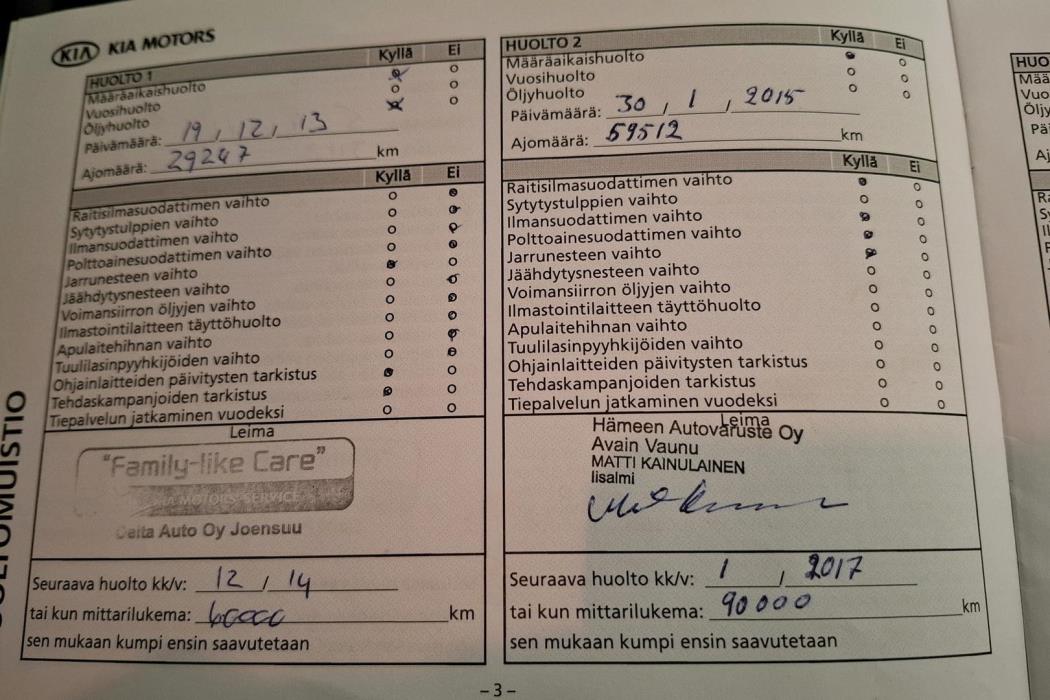 KIA KIA MOTORS
HUOLTO 1 Kyllä Ei
Määräaikaishuolto
Vuosihuolto
Öljyhuolto
Päivämäärä: 19, 12, 13
Ajomäärä: 29247 km
Kyllä Ei
Raitisilmasuodattimen vaihto
Sytytystulppien vaihto
Ilmansuodattimen vaihto
Polttoainesuodattimen vaihto
Jarrunesteen vaihto
Jäähdytysnesteen vaihto
Voimansiirron öljyjen vaihto
Ilmastointilaitteen täyttöhuolto
Apulaitehihnan vaihto
Tuulilasinpyyhkijöiden vaihto
Ohjainlaitteiden päivitysten tarkistus
Tehdaskampanjoiden tarkistus
Tiepalvelun jatkaminen vuodeksi
Leima
"Family-like Care"
KIA MOTORS SERVICE
Delta Auto Oy Joensuu
Seuraava huolto kk/v: 12 / 14
tai kun mittarilukema: 60000 km
sen mukaan kumpi ensin saavutetaan
HUOLTO 2 Kyllä Ei
Määräaikaishuolto
Vuosihuolto
Öljyhuolto
Päivämäärä: 30 , 1 , 2015
Ajomäärä: 59512 km
Kyllä Ei
Raitisilmasuodattimen vaihto
Sytytystulppien vaihto
Ilmansuodattimen vaihto
Polttoainesuodattimen vaihto
Jarrunesteen vaihto
Jäähdytysnesteen vaihto
Voimansiirron öljyjen vaihto
Ilmastointilaitteen täyttöhuolto
Apulaitehihnan vaihto
Tuulilasinpyyhkijöiden vaihto
Ohjainlaitteiden päivitysten tarkistus
Tehdaskampanjoiden tarkistus
Tiepalvelun jatkaminen vuodeksi
Leima
Hämeen Autovaruste Oy
Avain Vaunu
MATTI KAINULAINEN
Iisalmi
Seuraava huolto kk/v: 1 / 2017
tai kun mittarilukema: 90000 km
sen mukaan kumpi ensin saavutetaan
– 3 –